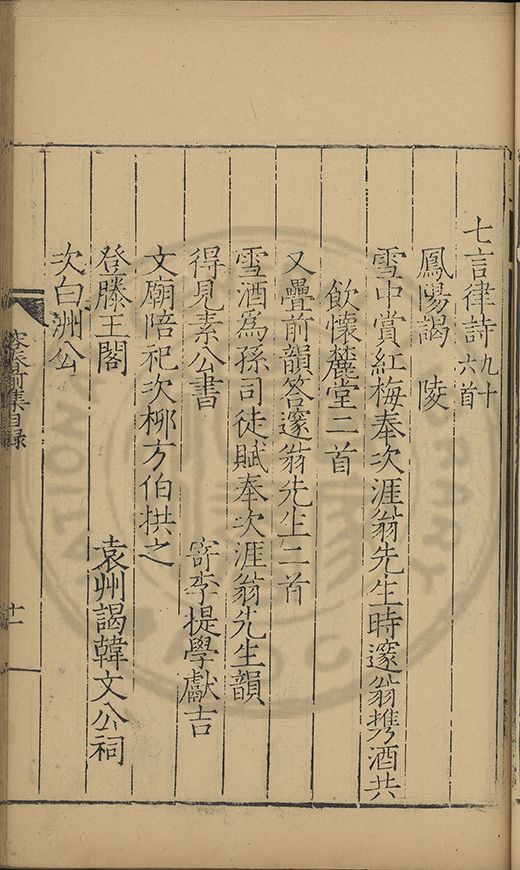 七言律詩九十六首
鳳陽謁 陵
雪中賞紅梅奉次涯翁先生時邃翁携酒共
飲懷麓堂二首
又疊前韻答邃翁先生二首
雪酒為孫司徒賦奉次涯翁先生韻
得見素公書 寄李提學獻吉
文廟陪祀次柳方伯拱之
登滕王閣 袁州謁韓文公祠
次白洲公
容春前集目録
十一